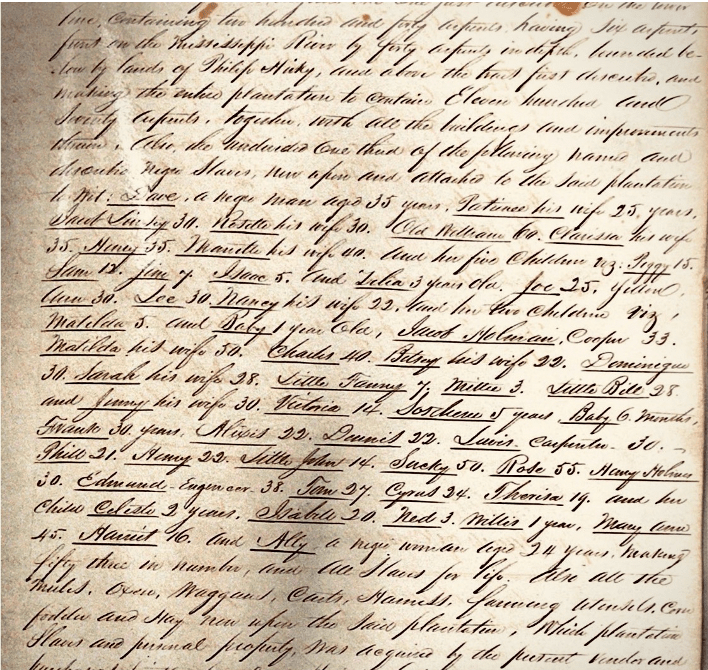 line containing two hundred and forty arpents, having Six arpents
front on the Mississippi River by forty arpents in depth, bounded be-
low by lands of Philip Hicky, and above the tract first described, and
making the entire plantation to contain Eleven hundred and
Twenty arpents, together, with all the buildings and improvements
thereon. Also, the undivided One third of the following named and
described Negro Slaves, now upon and attached to the said plantation
to Wit: Dave, a negro man aged 35 years, his wife 25, years,
30. Rosette his wife 30. Old William 60. Clarissa his wife
35. Henry 35. his wife 40. and her five Children viz: Peggy 15.
Sam 12. Jim 7. Isaac 5. and Delia 3 years old, Joe 25,
Ann 30. Lee 30. Nancy his wife 22, and her two Children viz,
Matilda 5. and Baby 1 year Old, Jacob Holmian, Cooper 33.
Matilda his wife 30. Charles 40. Betsey his wife 22. Dominique
30. Sarah his wife 28. Little Fanny 7. Millie 3. Little Bill 28
and Jenny his wife 30. Victoria 14. 5 years, Baby 6. Months,
Frank 30. years. Alexis 22. Dennis 22. Lewis. Carpenter. 30. -
Phill 21. Henry 22. Little John 14. Sucky 50. Rose 55. Henry Holmes
30. Edmund - Engineer. 38. Tom 27. Cyrus 24. Theresa 19. and her
Child Celeste 2 years. Isabell 20. Ned 3. Willis 1 year, Mary Ann
45. Harriet 16. and Ally a negro woman aged 24 years, making
fifty three in number, and all Slaves for life. Also all the
Mules, Oxen, Waggons, Carts, Harness, farming utensils, Corn
fodder and Hay now upon the Said plantation, Which plantation
Slaves and personal property, was acquired by the present vendor and